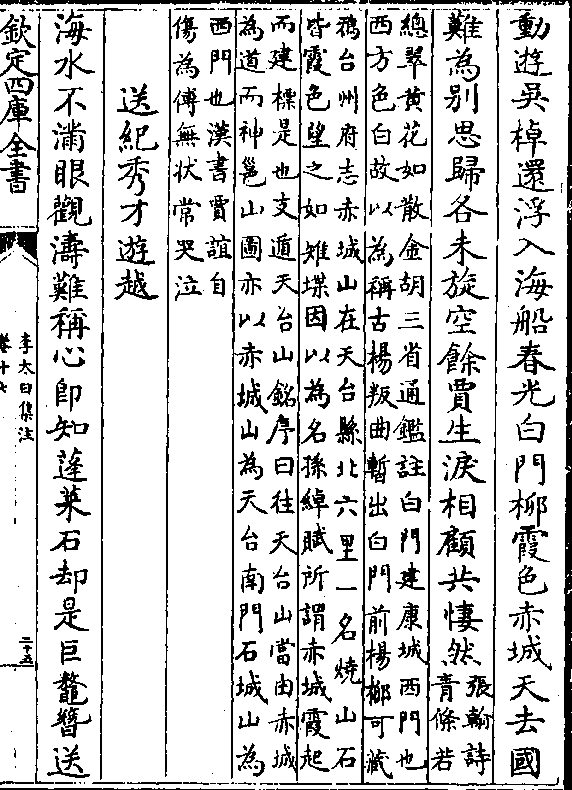 動遊吳棹還浮入海船春光白門柳霞色赤城天去國
難為别思歸各未旋空餘賈生淚相顧共悽然張翰詩
青條若
總翠黄花如散金胡三省通鑑註白門建康城西門也
西方色白故以為稱古楊叛曲暫出白門前楊柳可藏
鴉台州府志赤城山在天台縣北六里一名燒山石
皆霞色望之如雉堞因以為名孫綽賦所謂赤城霞起
而建標是也支遁天台山銘序曰往天台山當由赤城
為道而神邕山圖亦以赤城山為天台南門石城山為
西門也漢書賈誼自
傷為傅無状常哭泣
送紀秀才遊越
海水不滿眼觀濤難稱心即知蓬萊石却是巨鼇簪送
欽定四庫全書
李太白集注
卷十七
二十五